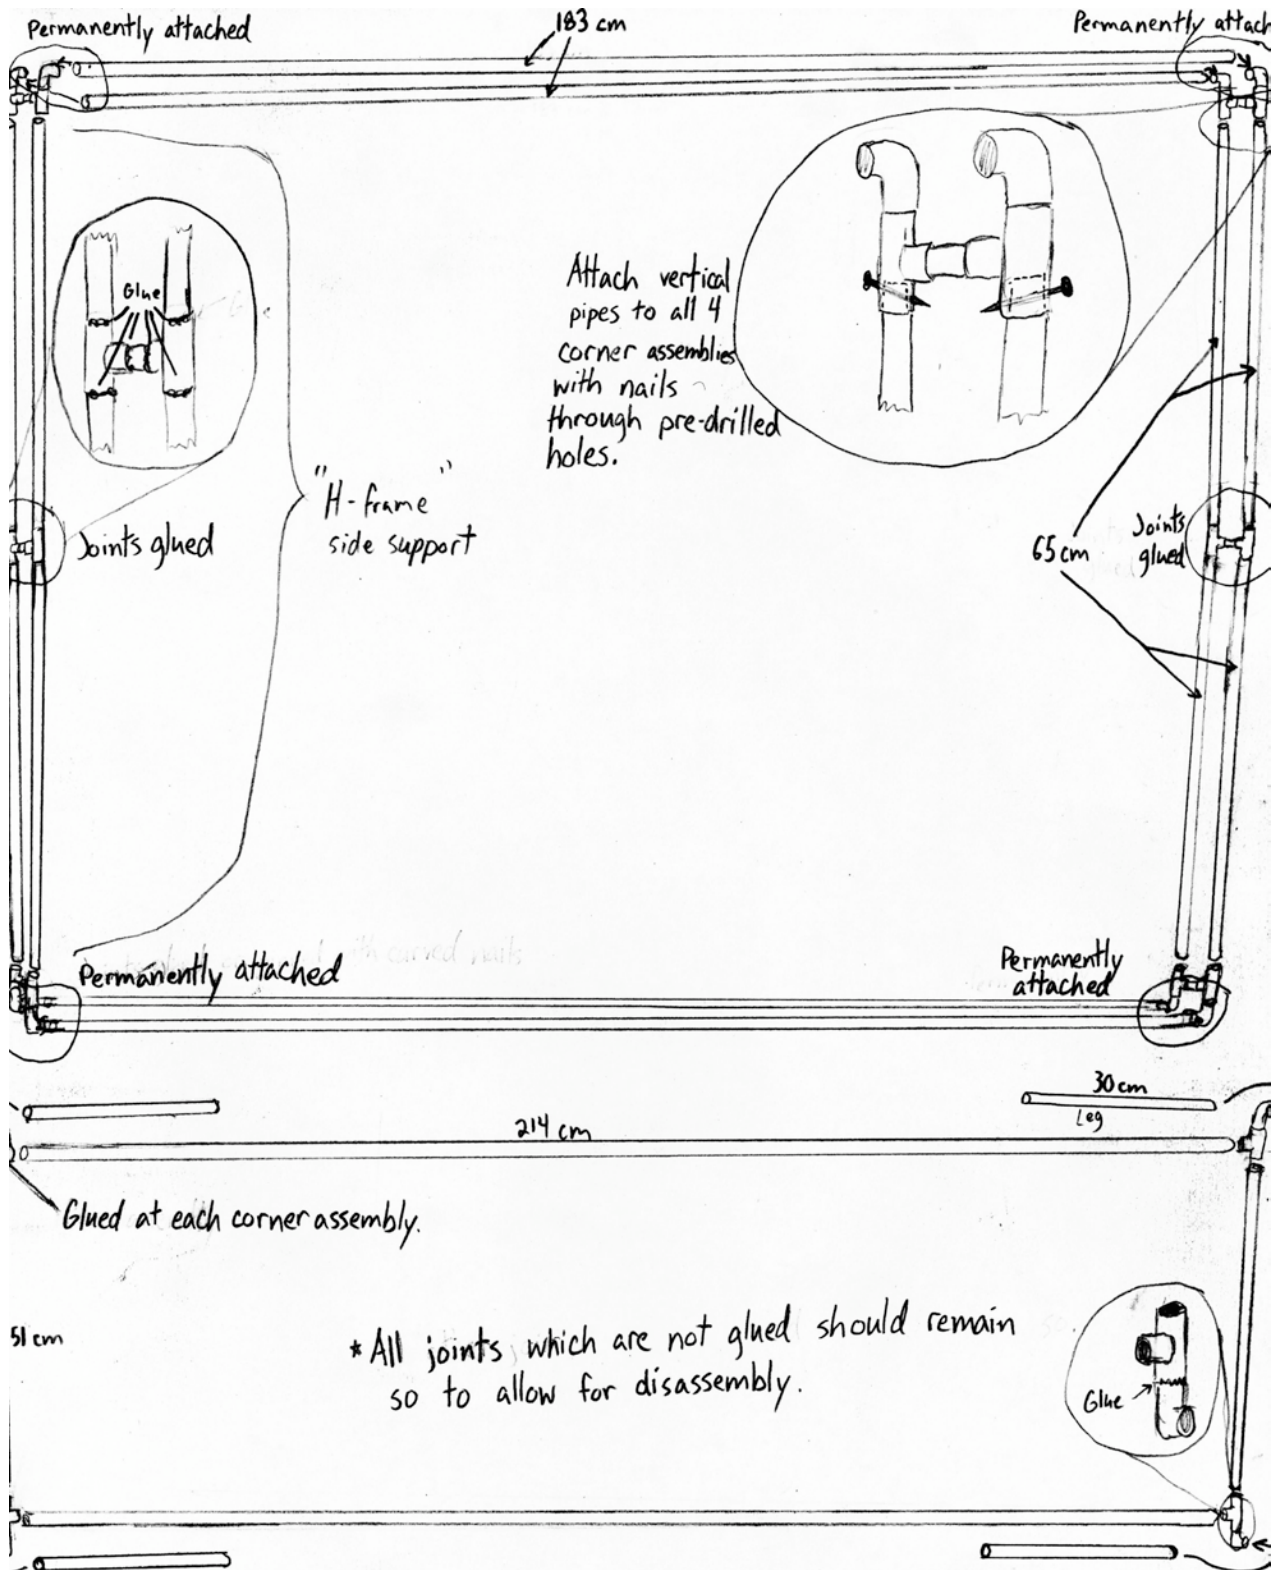 Permanently attached
183 cm
Permanently attach
Glue
Attach vertical
pipes to all 4
corner assemblies
with nails
through pre-drilled
holes.
"H-frame"
side support
Joints glued
65 cm
Joints
glued
Permanently attached
Permanently
attached
30 cm
Leg
214 cm
Glued at each corner assembly.
51 cm
*All joints, which are not glued should remain
so to allow for disassembly.
Glue